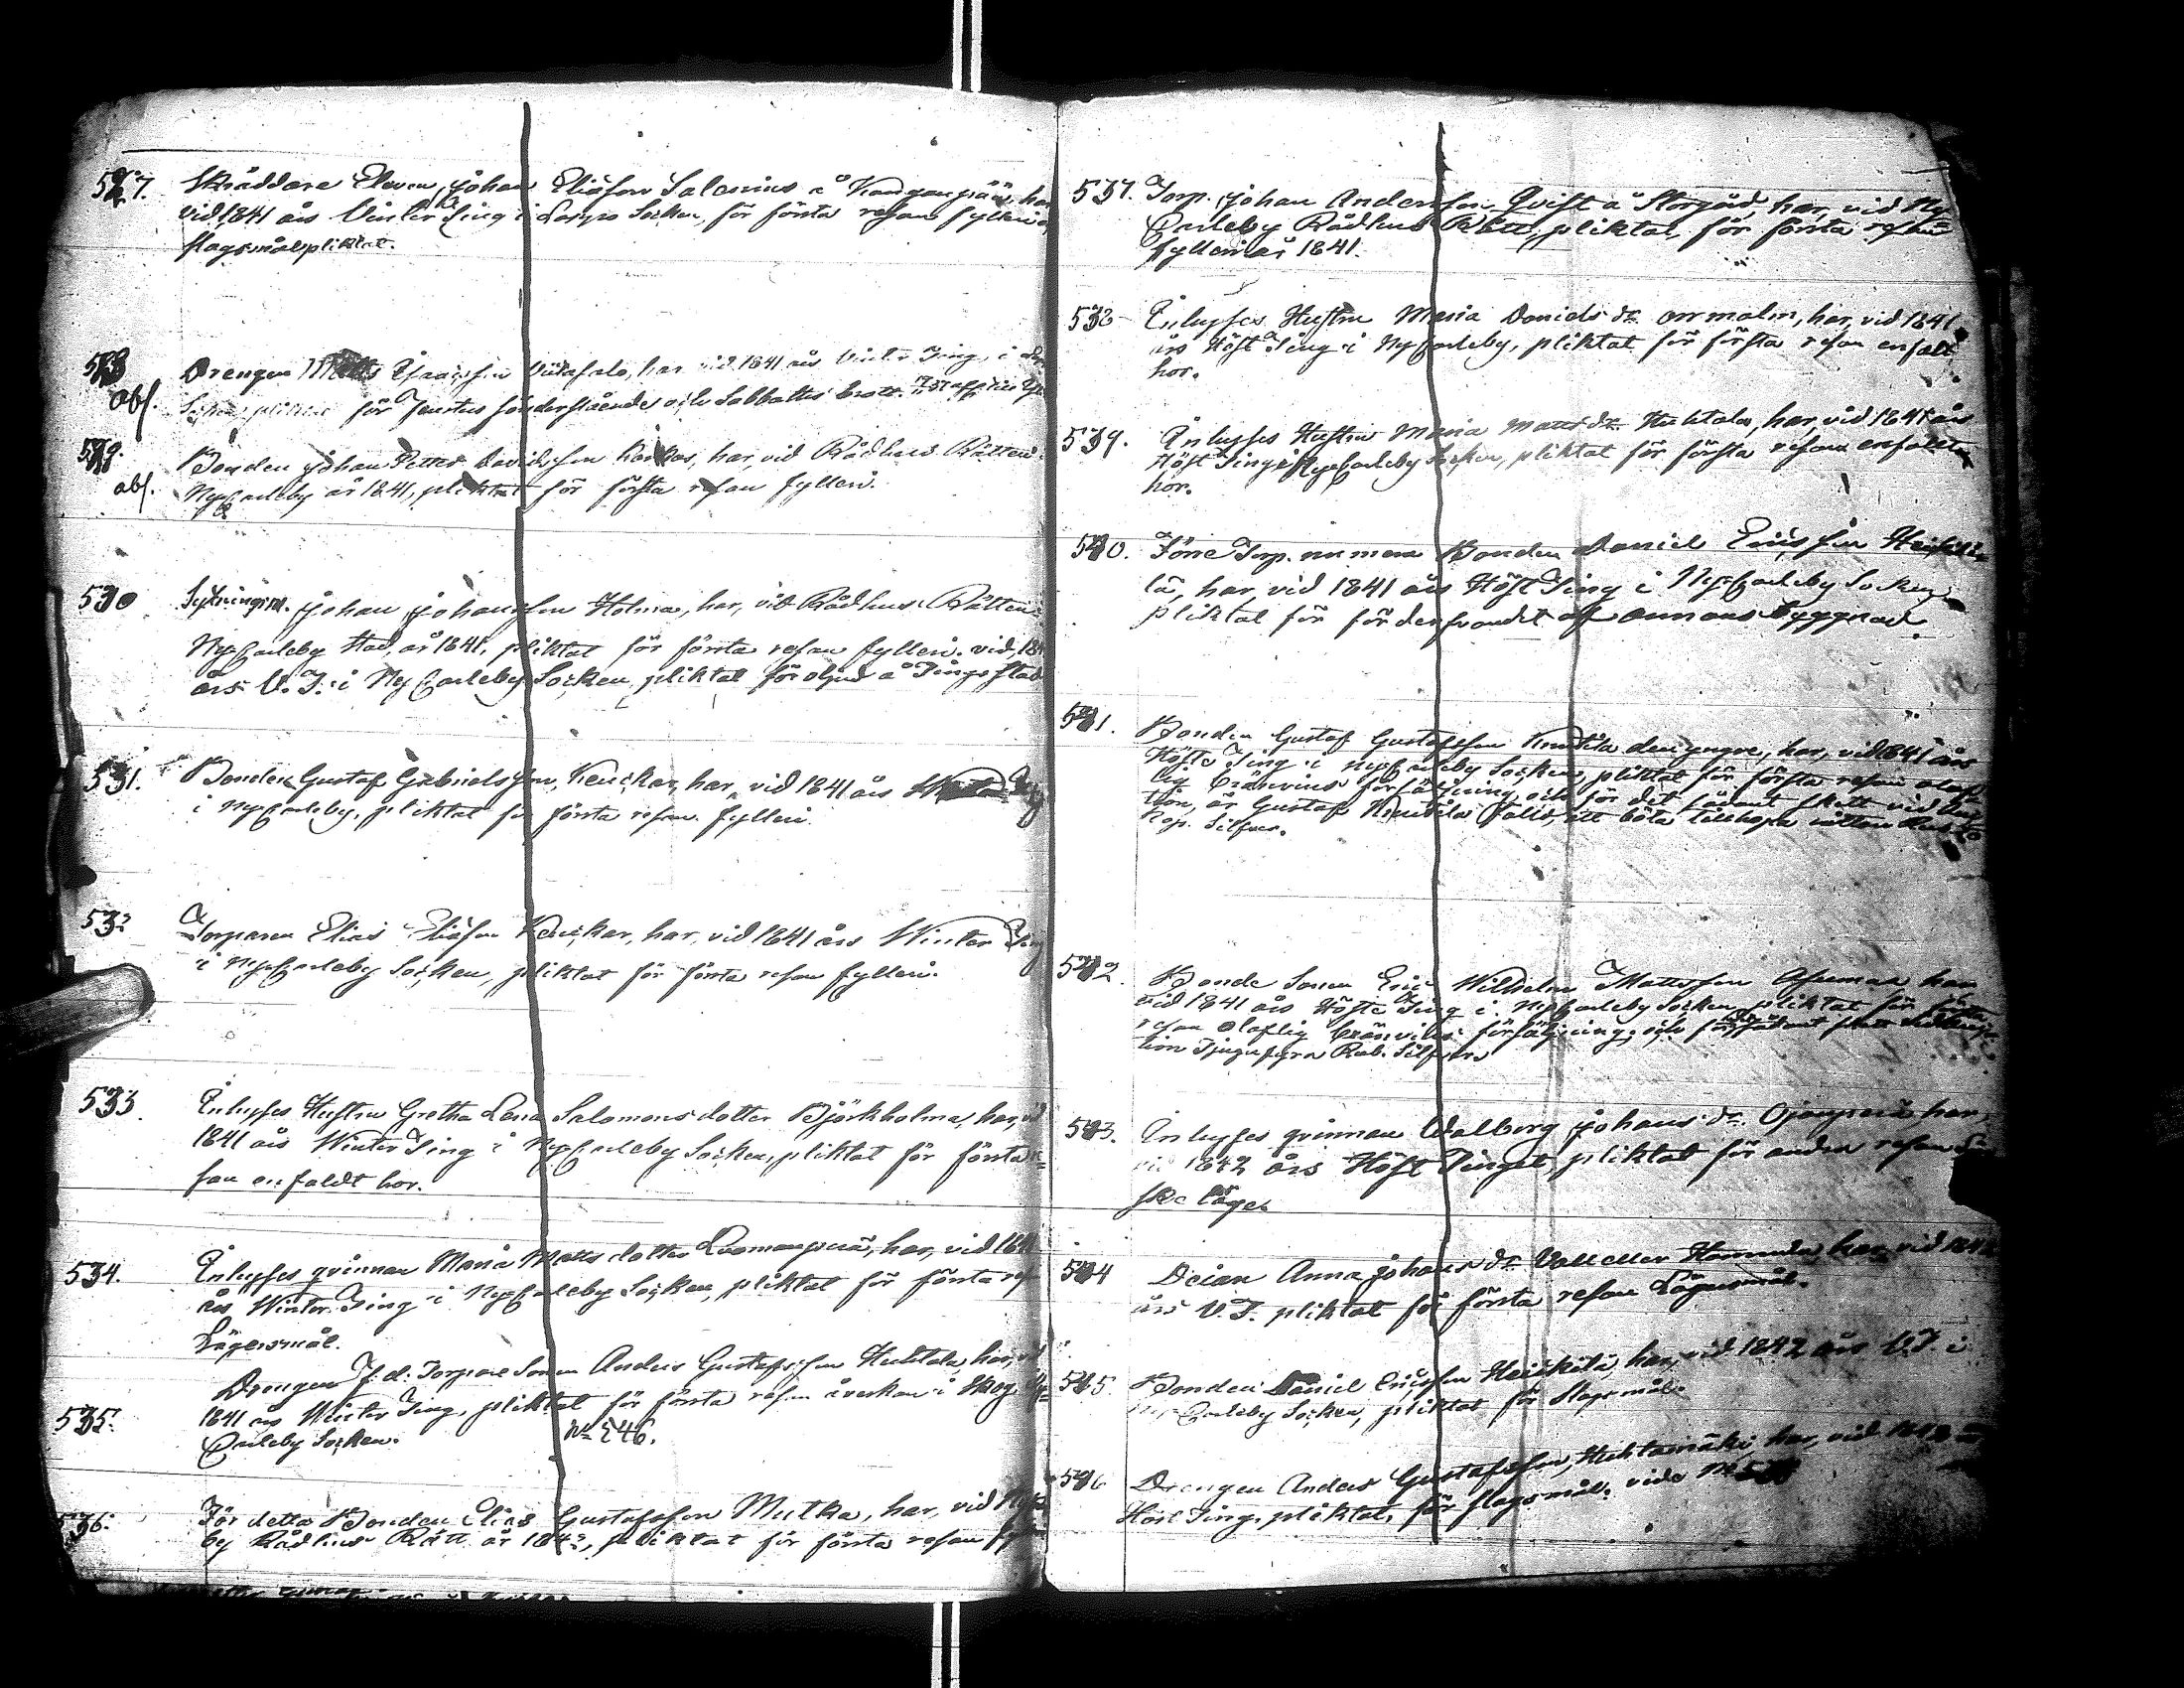 527. Skräddare Eleven, Johan Eliasson Salenius å Kanganpää, har
vid 1841 års Vinter Ting i Lappo Socken, för första resan fylleri o,
slagsmål pliktat.
528 Drengen Matts Isaacsson har vid 1841 års Vinter Ting, i
abs. Socken pliktat för fenster sönderslående och Sabbatts brott.
529. Bonden Johan Petter Davidsson har, vid Rådhus Rätten i
abs. NyCarleby år 1841, pliktat för första resan fylleri.
530 Sytningsm. Johan Johansson Holma, har, vid Rådhus Rätten i
NyCarleby Stad, år 1841, pliktat för första resan fylleri. vid, 18
års V. T. i NyCarleby Socken, pliktat för oljud å Tings stad
531. Bonden Gustaf Gabrielsson, Keuckar, har, vid 1841 års Winter Ting
i NyCarleby, pliktat för första resan fylleri
532 Torparen Elias Eliasson Keuckar, har, vid 1841 års Winter Ting
i NyCarleby Socken, pliktat för första resan fylleri.
533. Inhyses Hustru Gretha Lena Salomonsdotter Björkholma, har, vid
1841 års Winter Ting i NyCarleby Socken, pliktat för första re=
san enfaldt hor.
534. Inhyses qvinnan Maria Matts dotter Luomanperä, har, vid 1841
års Winter Ting i NyCarleby Socken, pliktat för första res
Lägersmål.
Drengen f. d. Torpare Sonen Anders Gustafsson Huhtala, har, vid
535. 1841 års Winter Ting, pliktat för första resan åverkan i Skog Ny=
Carleby Socken. No 546.
536. För detta Bonden Elias Gustafsson Mutka, har, vid NyCarle
by Rådhus Rätt år 184, pliktat för första resan fylleri
537. Torp. Johan Andersson Qvist å Storgård, har, vid Ny
Carleby Rådhus Rätt, pliktat, för första resan
fylleri år 1841.
538 Inhyses Hustru Maria Daniels dr. Ormmalm, har, vid 1841
års Höst Ting i NyCarleby, pliktat för första resan enfalt
hor.
539. Inhyses Hustru Maria Matts dr. Huhtala, har, vid 1841 års
Höst Ting i NyCarleby Socken, pliktat för första resan enfaldt
hor.
540. Förre Torp. nu mera Bonden Daniel Ericsson Heikki
lä, har, vid 1841 års Höst Ting i NyCarleby Socken
pliktat för förderfvandet af annans byggnad.
541. Bonden Gustaf Gustafsson Knuutila den yngre, har, vid 1841 års
Höste Ting i NyCarleby Socken, pliktat för första resan olof
lig bränvins försäljning och för det sådant skett vid
tion, är Gustaf Knuutila fälld, att böta tillhopa
Kop. Silfver.
542. Bonde Sonen Eric Wilhelm Mattsson har
vid 1841 års Höste Ting i NyCarleby Socken, pliktat för första
resan olaflig bränvins försäljning, och för sådant skett vid
tion Tjugufyra Rub. Silfver
543. Inhyses qvinnan Walborg Johans dr. Ojanperä, har,
vid 1842 års Höst Tinget, pliktat för andra resan
ske läger
544 Deian Anna Johans dr. Vall eller har, vid 1842
års V. T. pliktat för första resan Lägersmål.
545. Bonden Daniel Ericsson Heickilä, har, vid 1842 års V. T. i
NyCarleby Socken, pliktat för Slagsmål.
546 Drengen Anders Gustafsson, Huhtamäki har, vid
Höst Ting, pliktat, för slagsmål. vide No